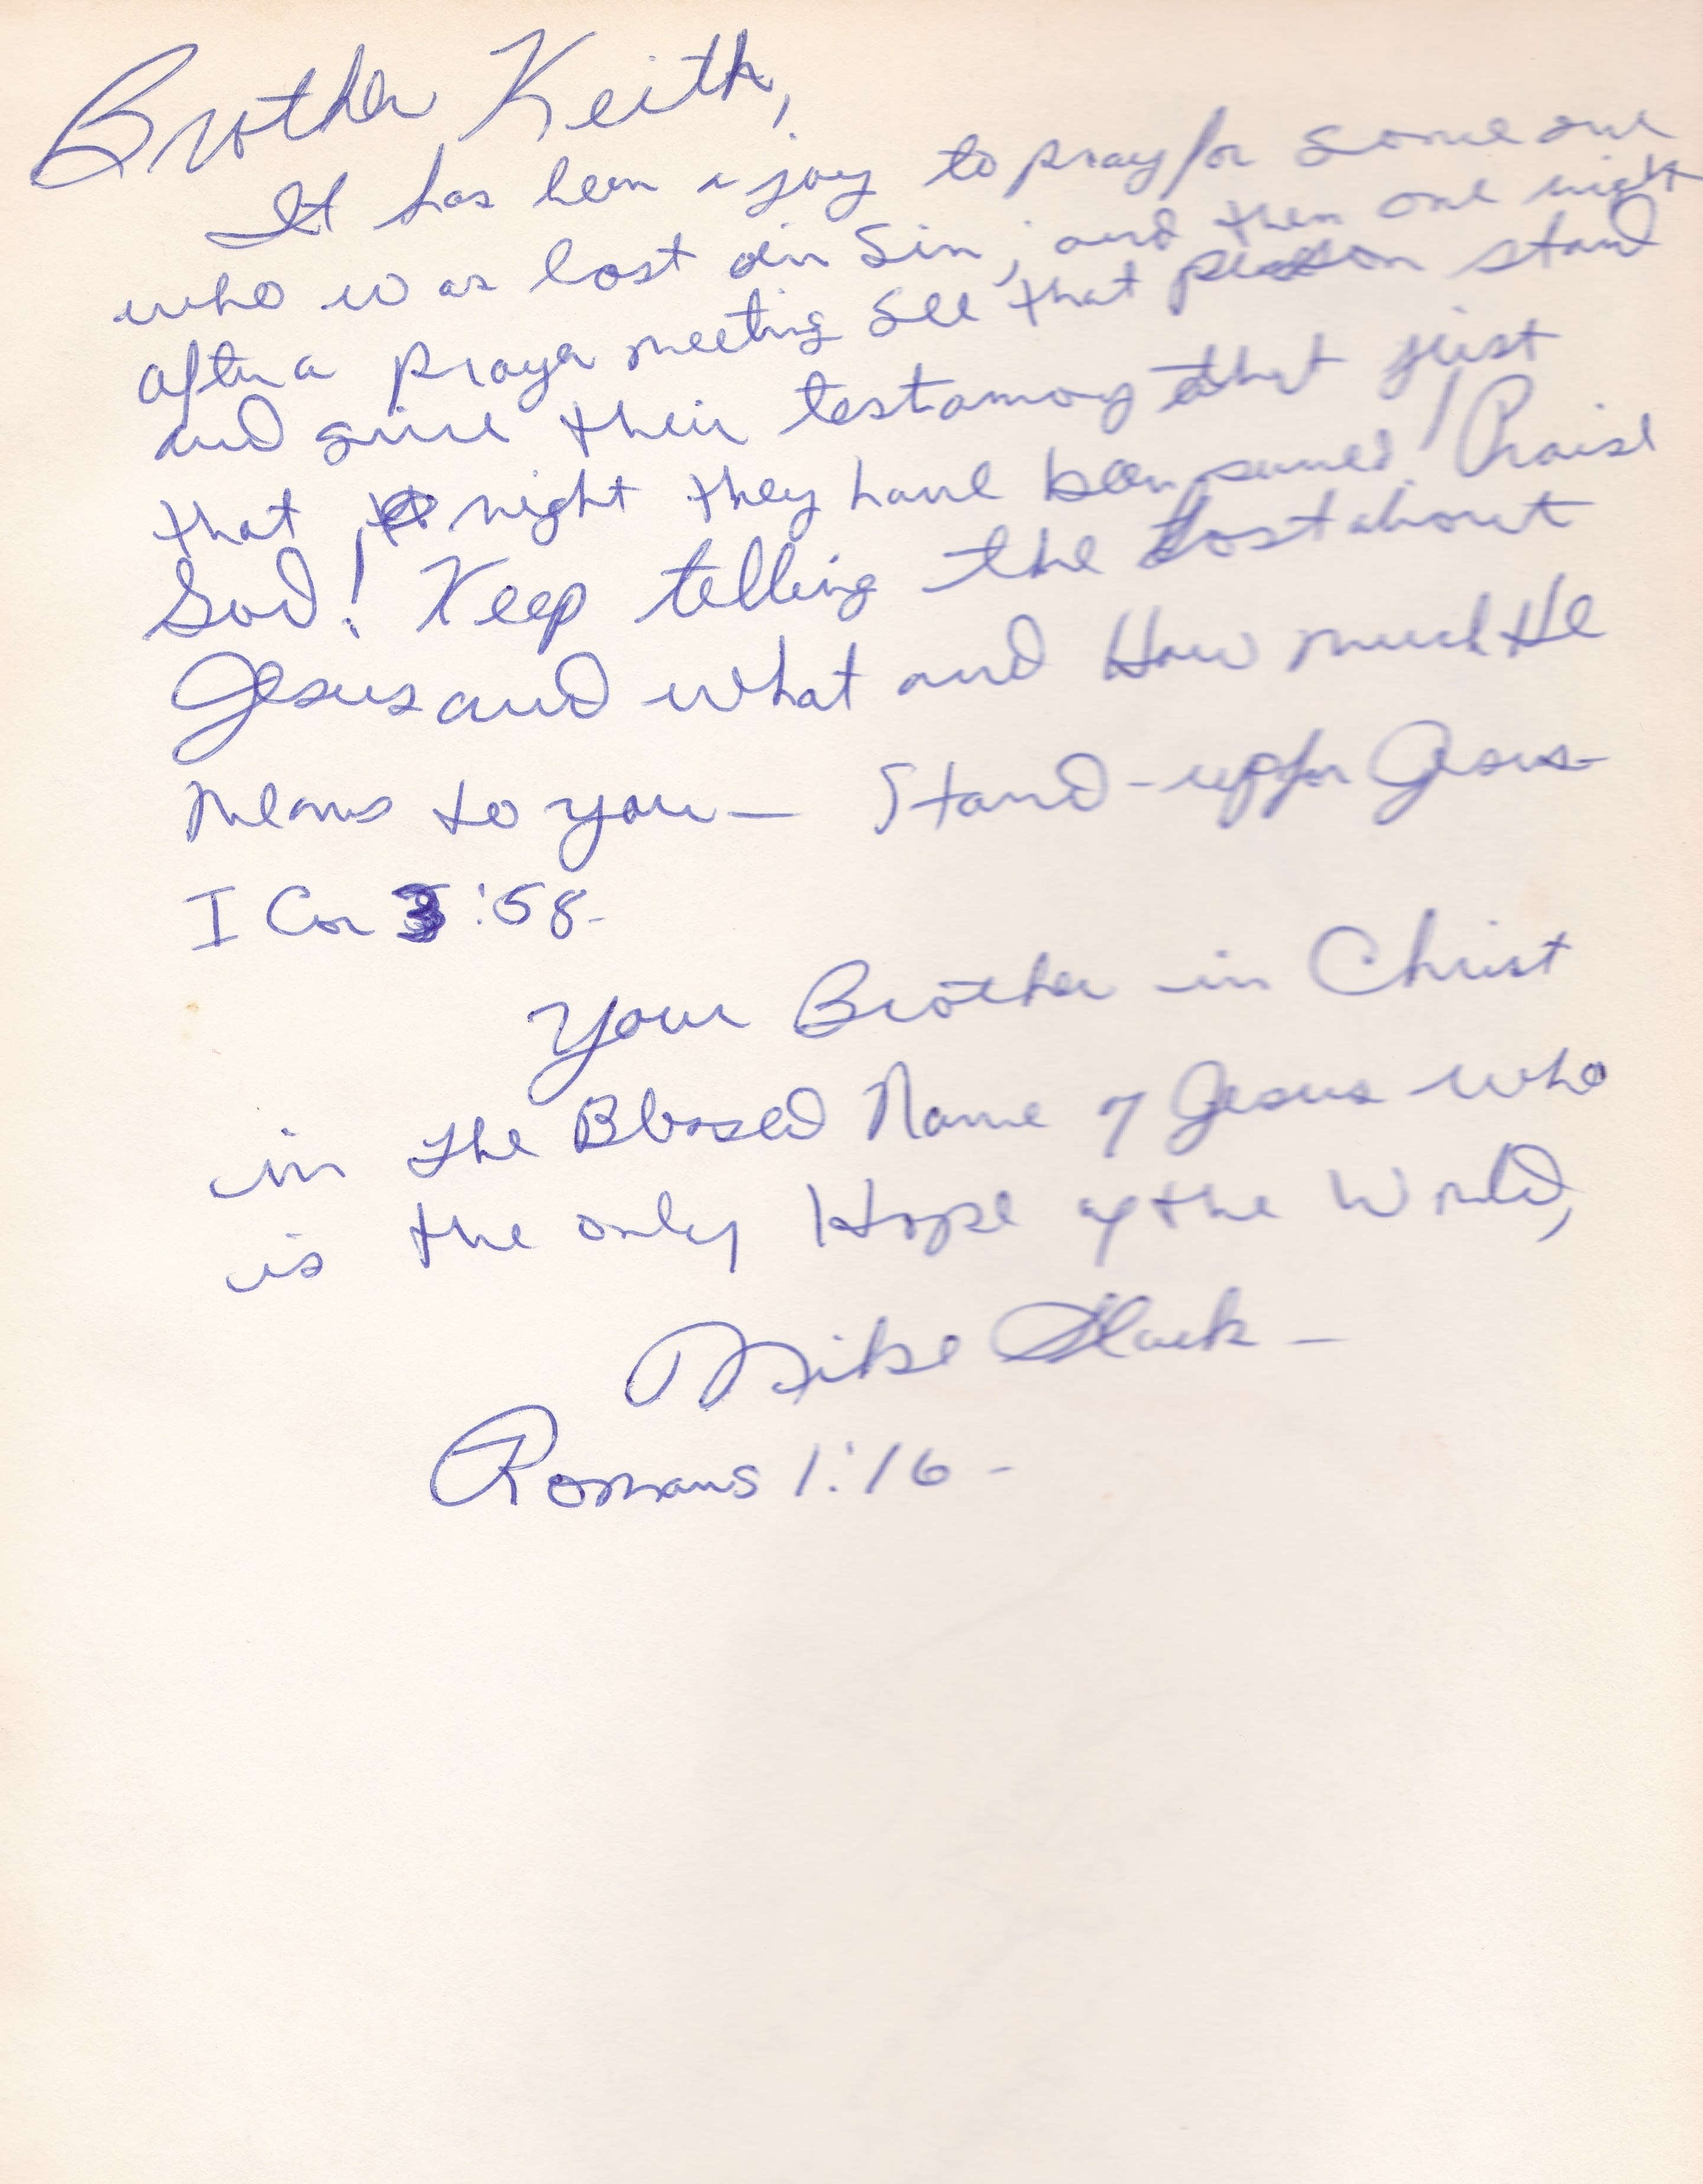 Brother Keith,
It has been a joy to pray for some one
who was lost in Sin; and then one night
after a prayer meeting see that person stand
and give their testamony that just
that night they have been saved! Praise
God! Keep telling the Lost about
Jesus and what and How much He
means to you — Stand-up for Jesus-
I Cor :58-
Your Brother in Christ
in the Blessed Name of Jesus who
is the only Hope of the World,
Mike Slack -
Romans 1:16 -